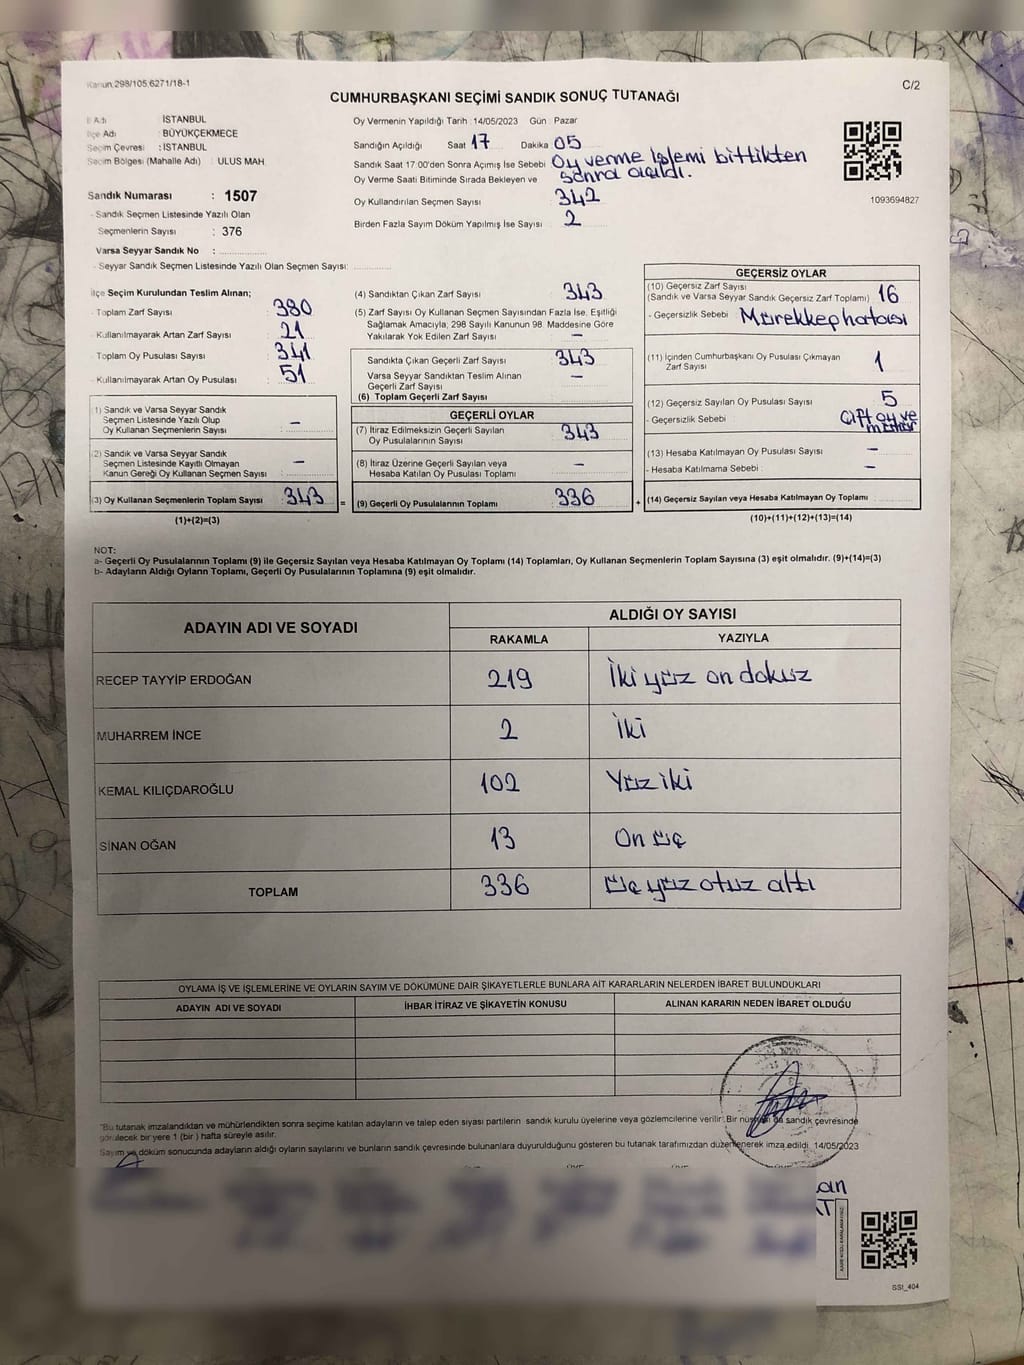 Kanun.298/105,6271/18-1
C/2
CUMHURBAŞKANI SEÇİMİ SANDIK SONUÇ TUTANAĞI
İl Adı : İSTANBUL
İlçe Adı : BÜYÜKÇEKMECE
Seçim Çevresi : İSTANBUL
Seçim Bölgesi (Mahalle Adı) : ULUS MAH.
Sandık Numarası : 1507
- Sandık Seçmen Listesinde Yazılı Olan
Seçmenlerin Sayısı : 376
Varsa Seyyar Sandık No :
- Seyyar Sandık Seçmen Listesinde Yazılı Olan Seçmen Sayısı:
Oy Vermenin Yapıldığı Tarih : 14/05/2023 Gün : Pazar
Sandığın Açıldığı Saat 17 Dakika 05
Sandık Saat 17:00'den Sonra Açımış İse Sebebi Oy verme işlemi bittikten
sonra açıldı.
Oy Verme Saati Bitiminde Sırada Bekleyen ve
Oy Kullandırılan Seçmen Sayısı 342
Birden Fazla Sayım Döküm Yapılmış İse Sayısı : 2
1093694827
İlçe Seçim Kurulundan Teslim Alınan;
- Toplam Zarf Sayısı : 380
- Kullanılmayarak Artan Zarf Sayısı : 21
- Toplam Oy Pusulası Sayısı : 341
- Kullanılmayarak Artan Oy Pusulası : 51
1) Sandık ve Varsa Seyyar Sandık
Seçmen Listesinde Yazılı Olup
Oy Kullanan Seçmenlerin Sayısı : –
2) Sandık ve Varsa Seyyar Sandık
Seçmen Listesinde Kayıtlı Olmayan
Kanun Gereği Oy Kullanan Seçmen Sayısı –
(3) Oy Kullanan Seçmenlerin Toplam Sayısı : 343 =
(1)+(2)=(3)
(4) Sandıktan Çıkan Zarf Sayısı : 343
(5) Zarf Sayısı Oy Kullanan Seçmen Sayısından Fazla İse, Eşitliği
Sağlamak Amacıyla, 298 Sayılı Kanunun 98. Maddesine Göre
Yakılarak Yok Edilen Zarf Sayısı : –
Sandıkta Çıkan Geçerli Zarf Sayısı : 343
Varsa Seyyar Sandıktan Teslim Alınan
Geçerli Zarf Sayısı : –
(6) Toplam Geçerli Zarf Sayısı :
GEÇERLİ OYLAR
(7) İtiraz Edilmeksizin Geçerli Sayılan
Oy Pusulalarının Sayısı : 343
(8) İtiraz Üzerine Geçerli Sayılan veya
Hesaba Katılan Oy Pusulası Sayısı : –
(9) Geçerli Oy Pusulalarının Toplamı : 336 +
GEÇERSİZ OYLAR
(10) Geçersiz Zarf Sayısı
(Sandık ve Varsa Seyyar Sandık Geçersiz Zarf Toplamı) : 16
- Geçersizlik Sebebi : Mürekkep hatası
(11) İçinden Cumhurbaşkanı Oy Pusulası Çıkmayan
Zarf Sayısı : 1
(12) Geçersiz Sayılan Oy Pusulası Sayısı : 5
- Geçersizlik Sebebi : Çift oy ve
mühür
(13) Hesaba Katılmayan Oy Pusulası Sayısı : –
- Hesaba Katılmama Sebebi : –
(14) Geçersiz Sayılan veya Hesaba Katılmayan Oy Toplamı :
(10)+(11)+(12)+(13)=(14)
NOT:
a- Geçerli Oy Pusulalarının Toplamı (9) ile Geçersiz Sayılan veya Hesaba Katılmayan Oy Toplamı (14) Toplamları, Oy Kullanan Seçmenlerin Toplam Sayısına (3) eşit olmalıdır. (9)+(14)=(3)
b- Adayların Aldığı Oyların Toplamı, Geçerli Oy Pusulalarının Toplamına (9) eşit olmalıdır.
ADAYIN ADI VE SOYADI
ALDIĞI OY SAYISI
RAKAMLA YAZIYLA
RECEP TAYYİP ERDOĞAN 219 İki yüz on dokuz
MUHARREM İNCE 2 İki
KEMAL KILIÇDAROĞLU 102 Yüz iki
SİNAN OĞAN 13 On üç
TOPLAM 336 üç yüz otuz altı
OYLAMA İŞ VE İŞLEMLERİNE VE OYLARIN SAYIM VE DÖKÜMÜNE DAİR ŞİKAYETLERLE BUNLARA AİT KARARLARIN NELERDEN İBARET BULUNDUKLARI
ADAYIN ADI VE SOYADI İHBAR İTİRAZ VE ŞİKAYETİN KONUSU ALINAN KARARIN NEDEN İBARET OLDUĞU
"Bu tutanak imzalandıktan ve mühürlendikten sonra seçime katılan adayların ve talep eden siyasi partilerin sandık kurulu üyelerine veya gözlemcilerine verilir. Bir da sandık çevresinde
görülecek bir yere 1 (bir ) hafta süreyle asılır.
Sayım ve döküm sonucunda adayların aldığı oyların sayılarını ve bunların sandık çevresinde bulunanlara duyurulduğunu gösteren bu tutanak tarafımızdan düzenlenerek imza edildi. 14/05/2023
SSI_404